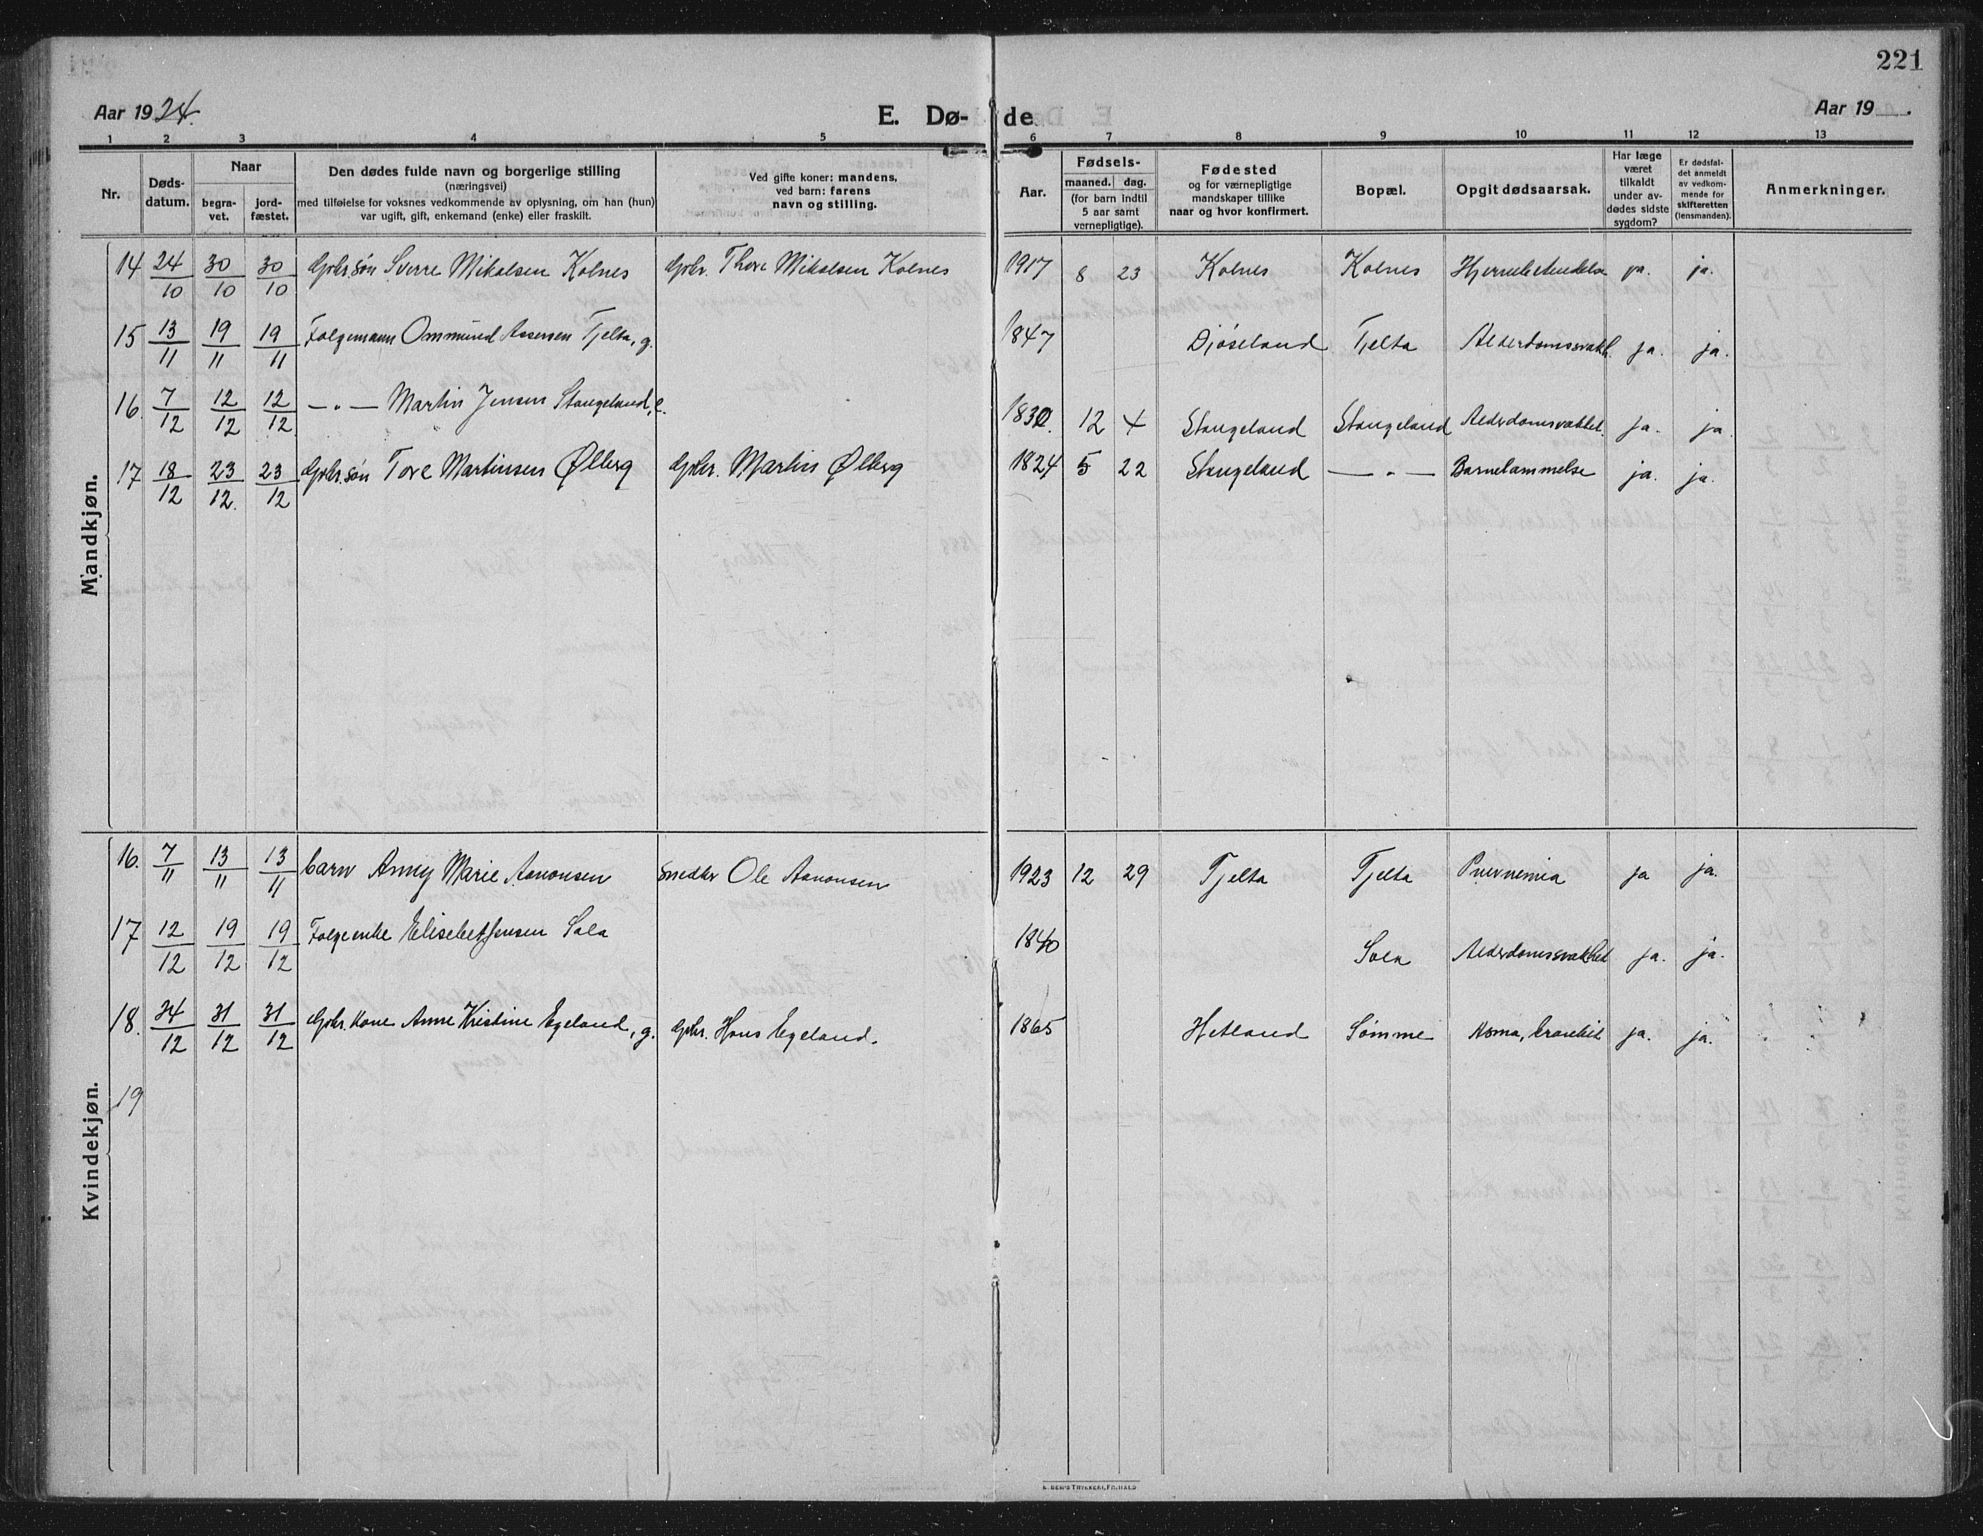 221
Aar 1924.
E. Dø- de
Aar 19 .
1 2 3 4 5 6 7 8 9 10 11 12 13
Nr.
Døds-
datum.
Naar
begra-
vet.
jord-
fæstet.
Den dødes fulde navn og borgerlige stilling
(næringsvei)
med tilføielse for voksnes vedkommende av oplysning, om han (hun)
var ugift, gift, enkemand (enke) eller fraskilt.
Ved gifte koner: mandens,
ved barn: farens
navn og stilling.
Aar.
Fødsels-
maaned. dag.
(for barn indtil
5 aar samt
vernepligtige).
Fødested
og for værnepligtige
mandskaper tillike
naar og hvor konfirmert.
Bopæl.
Opgit dødsaarsak.
Har læge
været
tilkaldt
under av-
dødes sidste
sygdom?
Er dødsfal-
det anmeldt
av vedkom-
mende for
skifteretten
(lensmanden).
Anmerkninger.
Mandkjøn.
14 24/10 30/10 30/10 Gbr. søn Sverre Mikalsen Kolnes Gbr. Thore Mikalsen Kolnes 1917 8 23 Kolnes Kolnes Hjernebetændelse ja. ja.
15 13/11 19/11 19/11 Folgemann Ommund Assersen Tjelta, g. 1847 Djøseland Tjelta Alderdomssvakh. ja. ja.
16. 7/12 12/12 12/12 — " — Martin Jensen Stangeland, e. 1830. 12 4 Stangeland Stangeland Alderdomsvakhet. ja. ja.
17 18/12 23/12. 23/12 Gbr. søn Tore Martinsen Ølberg Gbr. Martin Ølberg 1824 5 22 Stangeland — " — Barnelammelse ja. ja.
Kvindekjøn.
16. 7/11 13/11 13/11 barn Anny Marie Aanonsen Snedker Ole Aanonsen 1923 12 29 Tjelta Tjelta Pnevnemia ja ja.
17 12/12 19/12 19/12 Folgeenke Elisebet Jensen Sola 1840 Sola Alderdomssvakhet ja. ja.
18. 24/12 31/12 31/12 Gbr. kone Anne Kristine Egeland, g. Gbr. Hans Egeland. 1865 Hetland Sømme Asma, bronkit ja. ja.
19